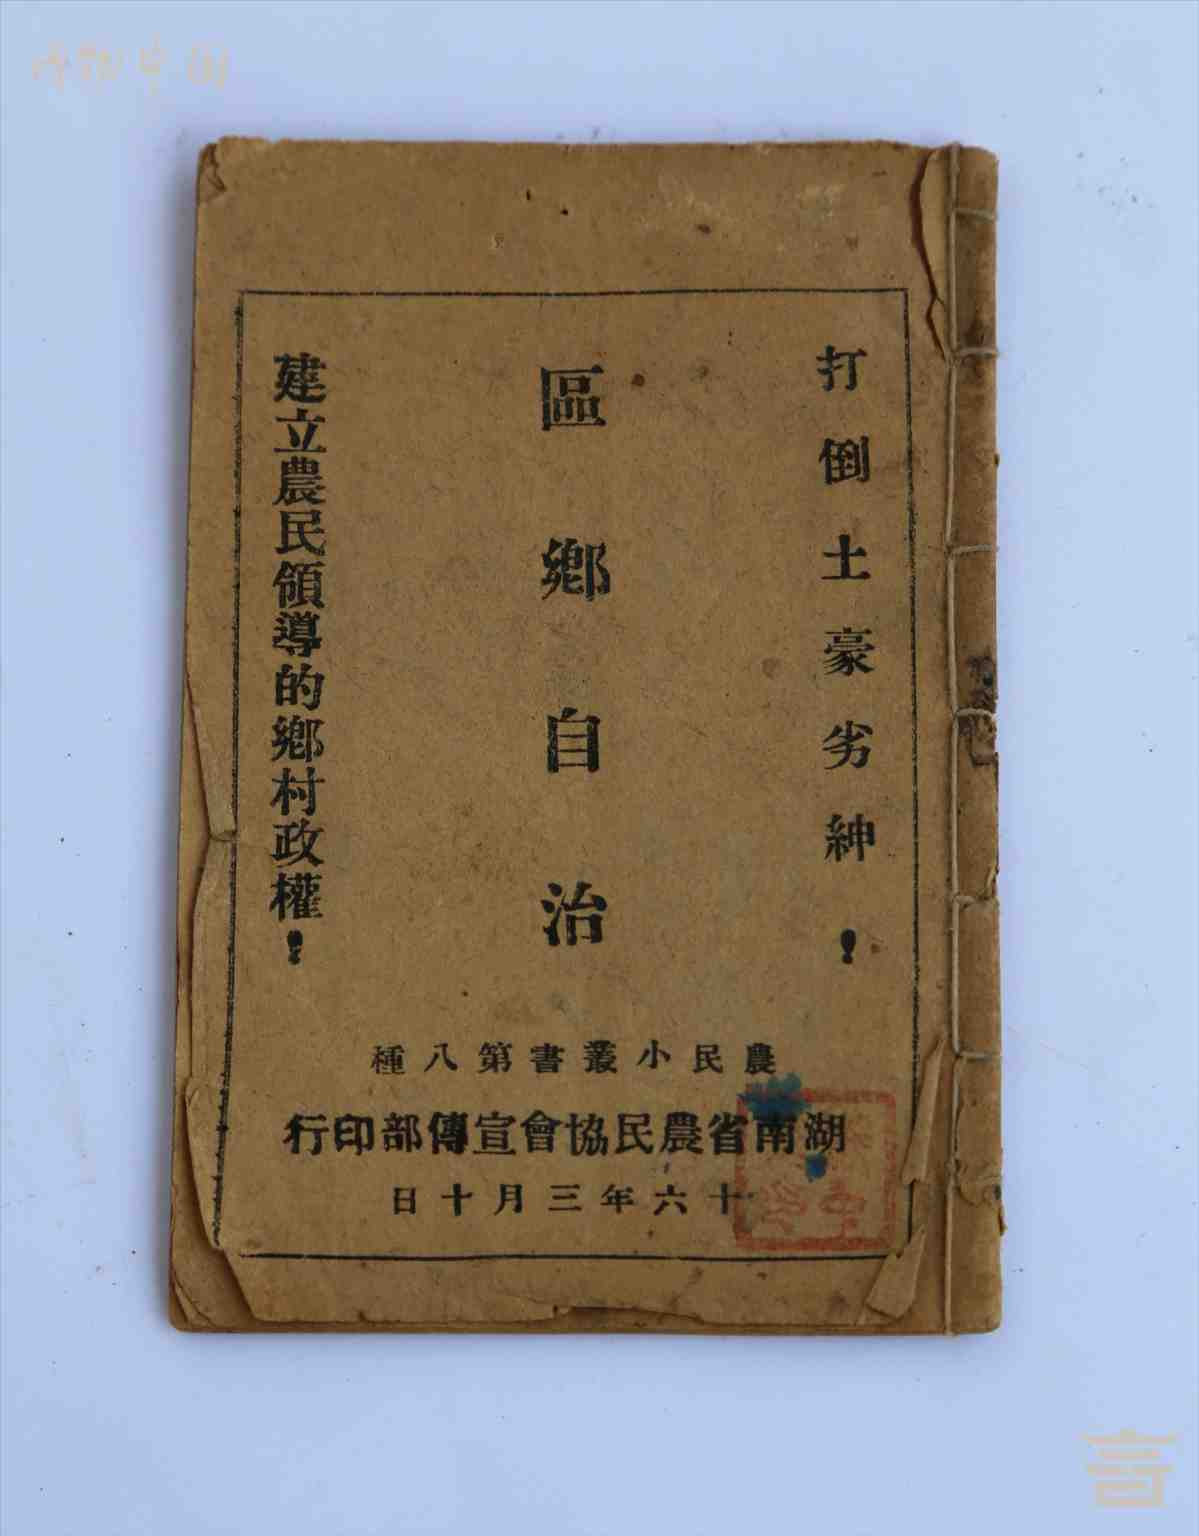 打倒土豪劣紳！
區鄉自治
建立農民領導的鄉村政權！
農民小叢書第八種
湖南省農民協會宣傳部印行
十六年三月十日